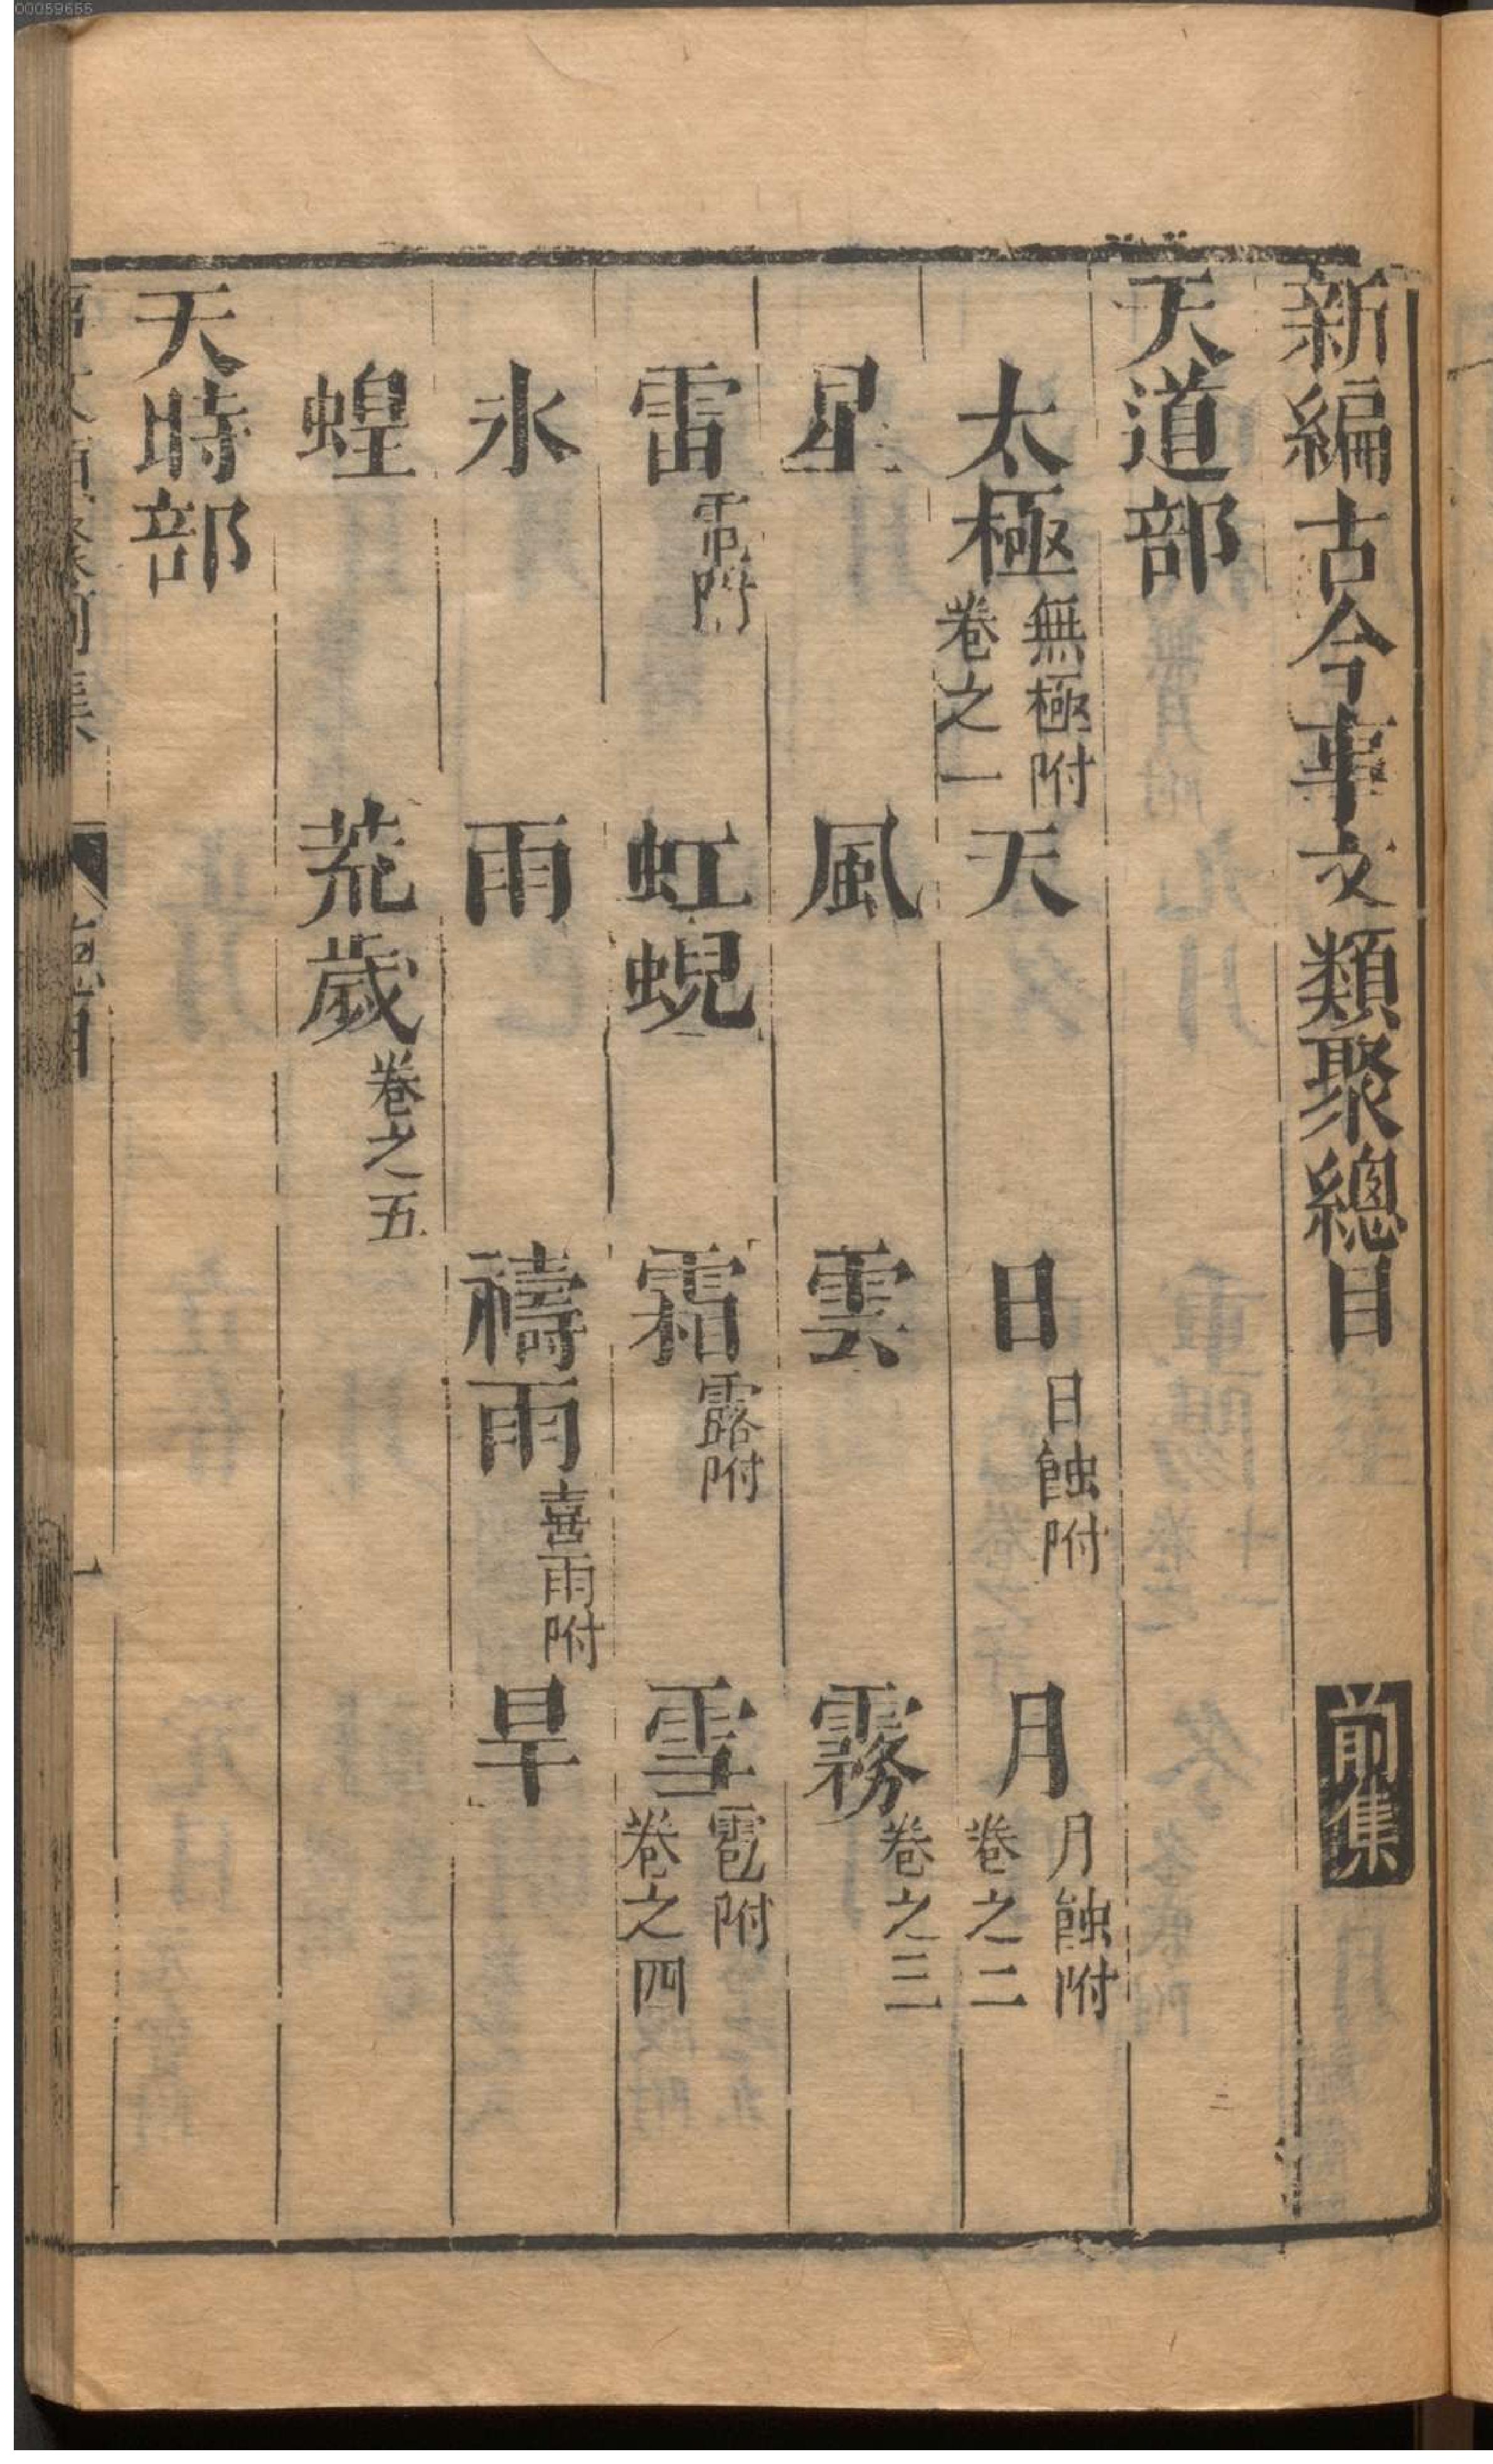 00059655
新編古今事文類聚總目 前集
天道部
太極 無極附 卷之一 天 日 日蝕附 月 月蝕附 卷之二
星 風 雲 霧 卷之三
雷 電附 虹蜺 霜 露附 雪 雹附 卷之四
氷 雨 禱雨 喜雨附 旱
蝗 荒歲 卷之五
天時部